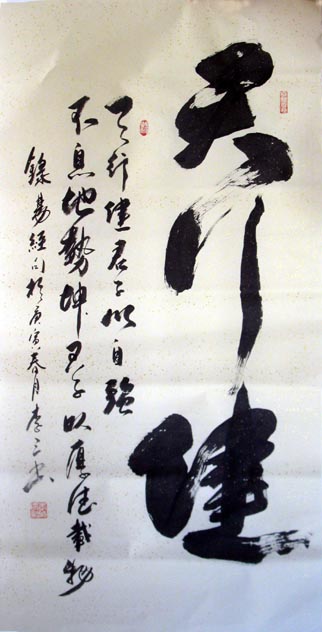 天行健
天行健君子以自强
不息地勢坤君子以厚德載物
錄易經句於庚寅春月李三